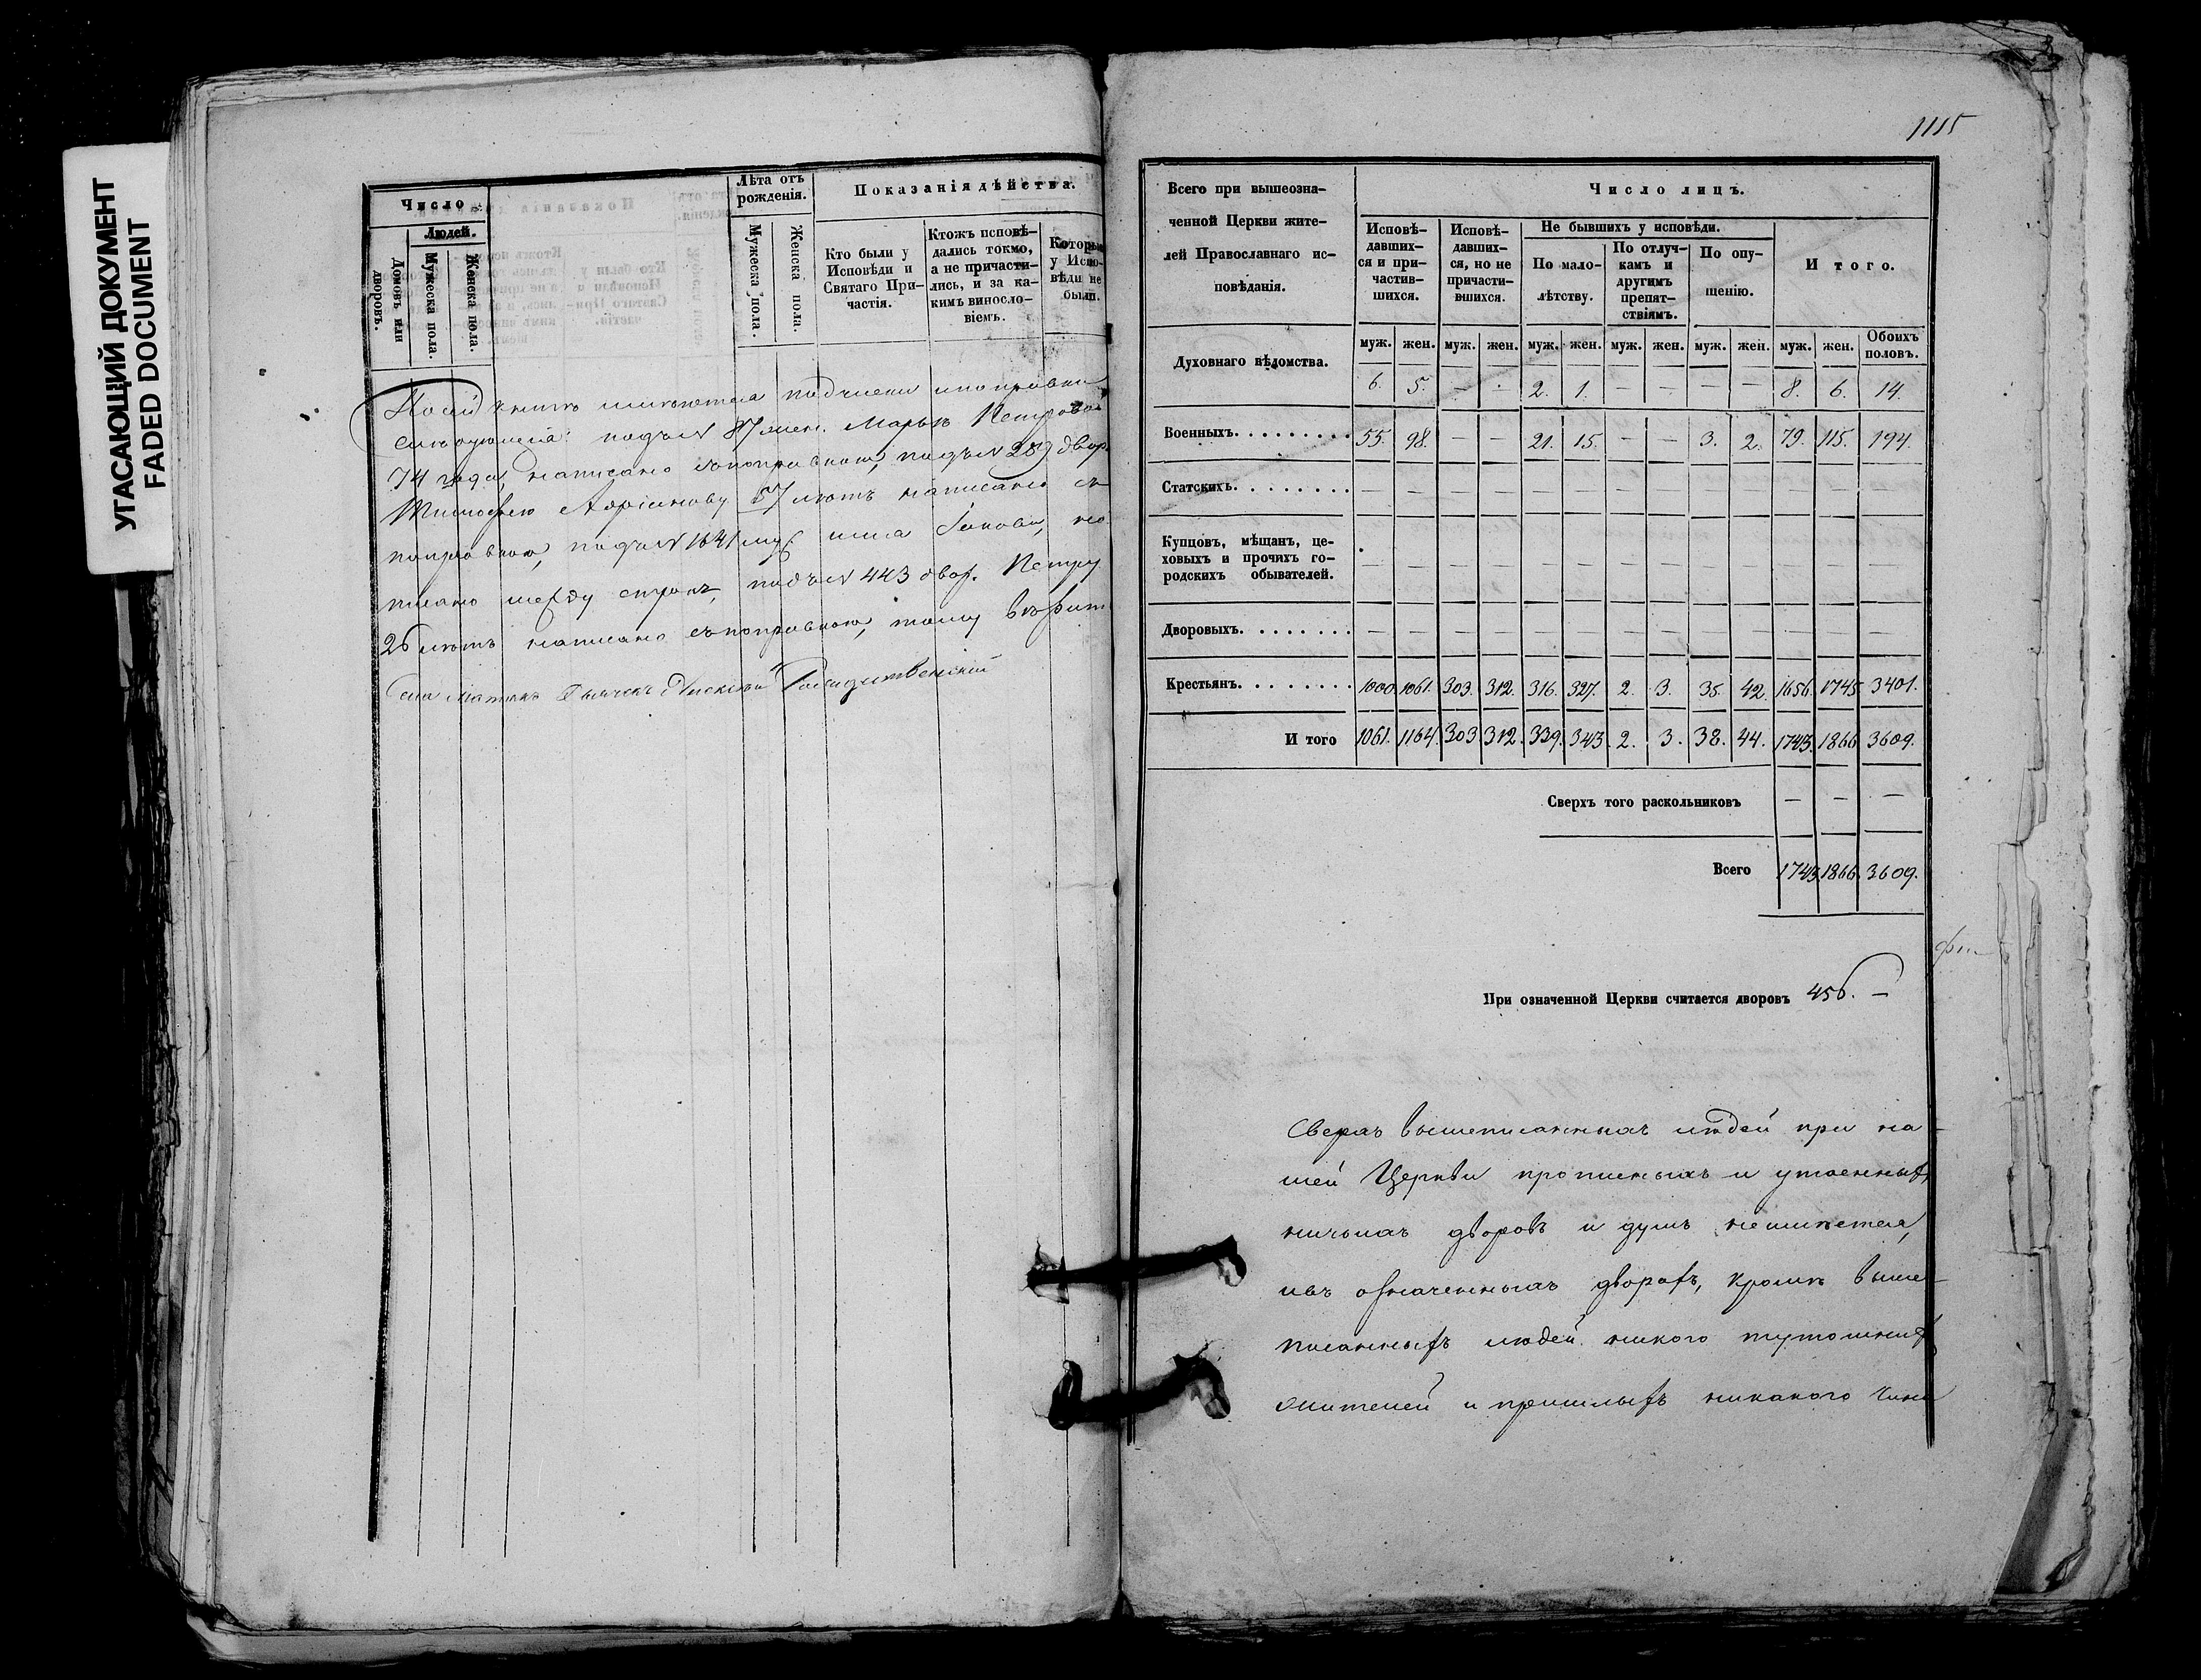 УГАСАЮЩИЙ ДОКУМЕНТ
FADED DOCUMENT
Число
Людей.
Домовъ или дворовъ.
Мужеска пола.
Женска пола.
Лѣта отъ рожденія.
Мужеска пола.
Женска пола.
Показанія дѣйства.
Кто были у Исповѣди и Святаго Причастія.
Ктожъ исповѣдались токмо, а не причастились, и за какимъ винословіемъ.
Которые у Исповѣди не были.
книгѣ имѣются подчистки и поправки
слѣдующія: подъ № 87 жен. Марьѣ Петровой
74 года, написано съ поправкою, подъ № 289 двор.
Тимофею Адріанову 57 лѣтъ написано съ
поправкою, подъ № 1641 муж имя Іаковъ, на
писано между строкъ, подъ № 443 двор. Петру
26 лѣтъ написано съ поправкою, тому вѣрит
Рождественскій
1115
Всего при вышеозначенной Церкви жителей Православнаго исповѣданія.
Число лицъ.
Исповѣдавшихся и причастившихся.
Исповѣдавшихся, но не причастившихся.
Не бывшихъ у исповѣди.
По малолѣтству.
По отлучкамъ и другимъ препятствіямъ.
По опущенію.
И того.
муж. жен. муж. жен. муж. жен. муж. жен. муж. жен. муж. жен. Обоихъ половъ.
Духовнаго вѣдомства. 6. 5. — — 2. 1. — — — — 8. 6. 14.
Военныхъ. 55. 98. — — 21. 15. — — 3. 2. 79. 115. 194.
Статскихъ. — — — — — — — — — — — — —
Купцовъ, мѣщанъ, цеховыхъ и прочихъ городскихъ обывателей. — — — — — — — — — — — — —
Дворовыхъ. — — — — — — — — — — — — —
Крестьянъ. 1000. 1061. 303. 312. 316. 327. 2. 3. 35. 42. 1656. 1745. 3401.
И того 1061. 1164. 303. 312. 339. 343. 2. 3. 38. 44. 1743. 1866. 3609.
Сверхъ того раскольниковъ — — —
Всего 1743. 1866. 3609.
При означенной Церкви считается дворовъ 456. —
Сверхъ вышеписанныхъ людей при на-
шей Церкви прописныхъ и утаенныхъ
ничьихъ дворовъ и душъ неимѣется,
ивъ означенныхъ дворахъ, кромѣ выше-
писанныхъ людей никого тутошнихъ
жителей и пришлыхъ никакого чина